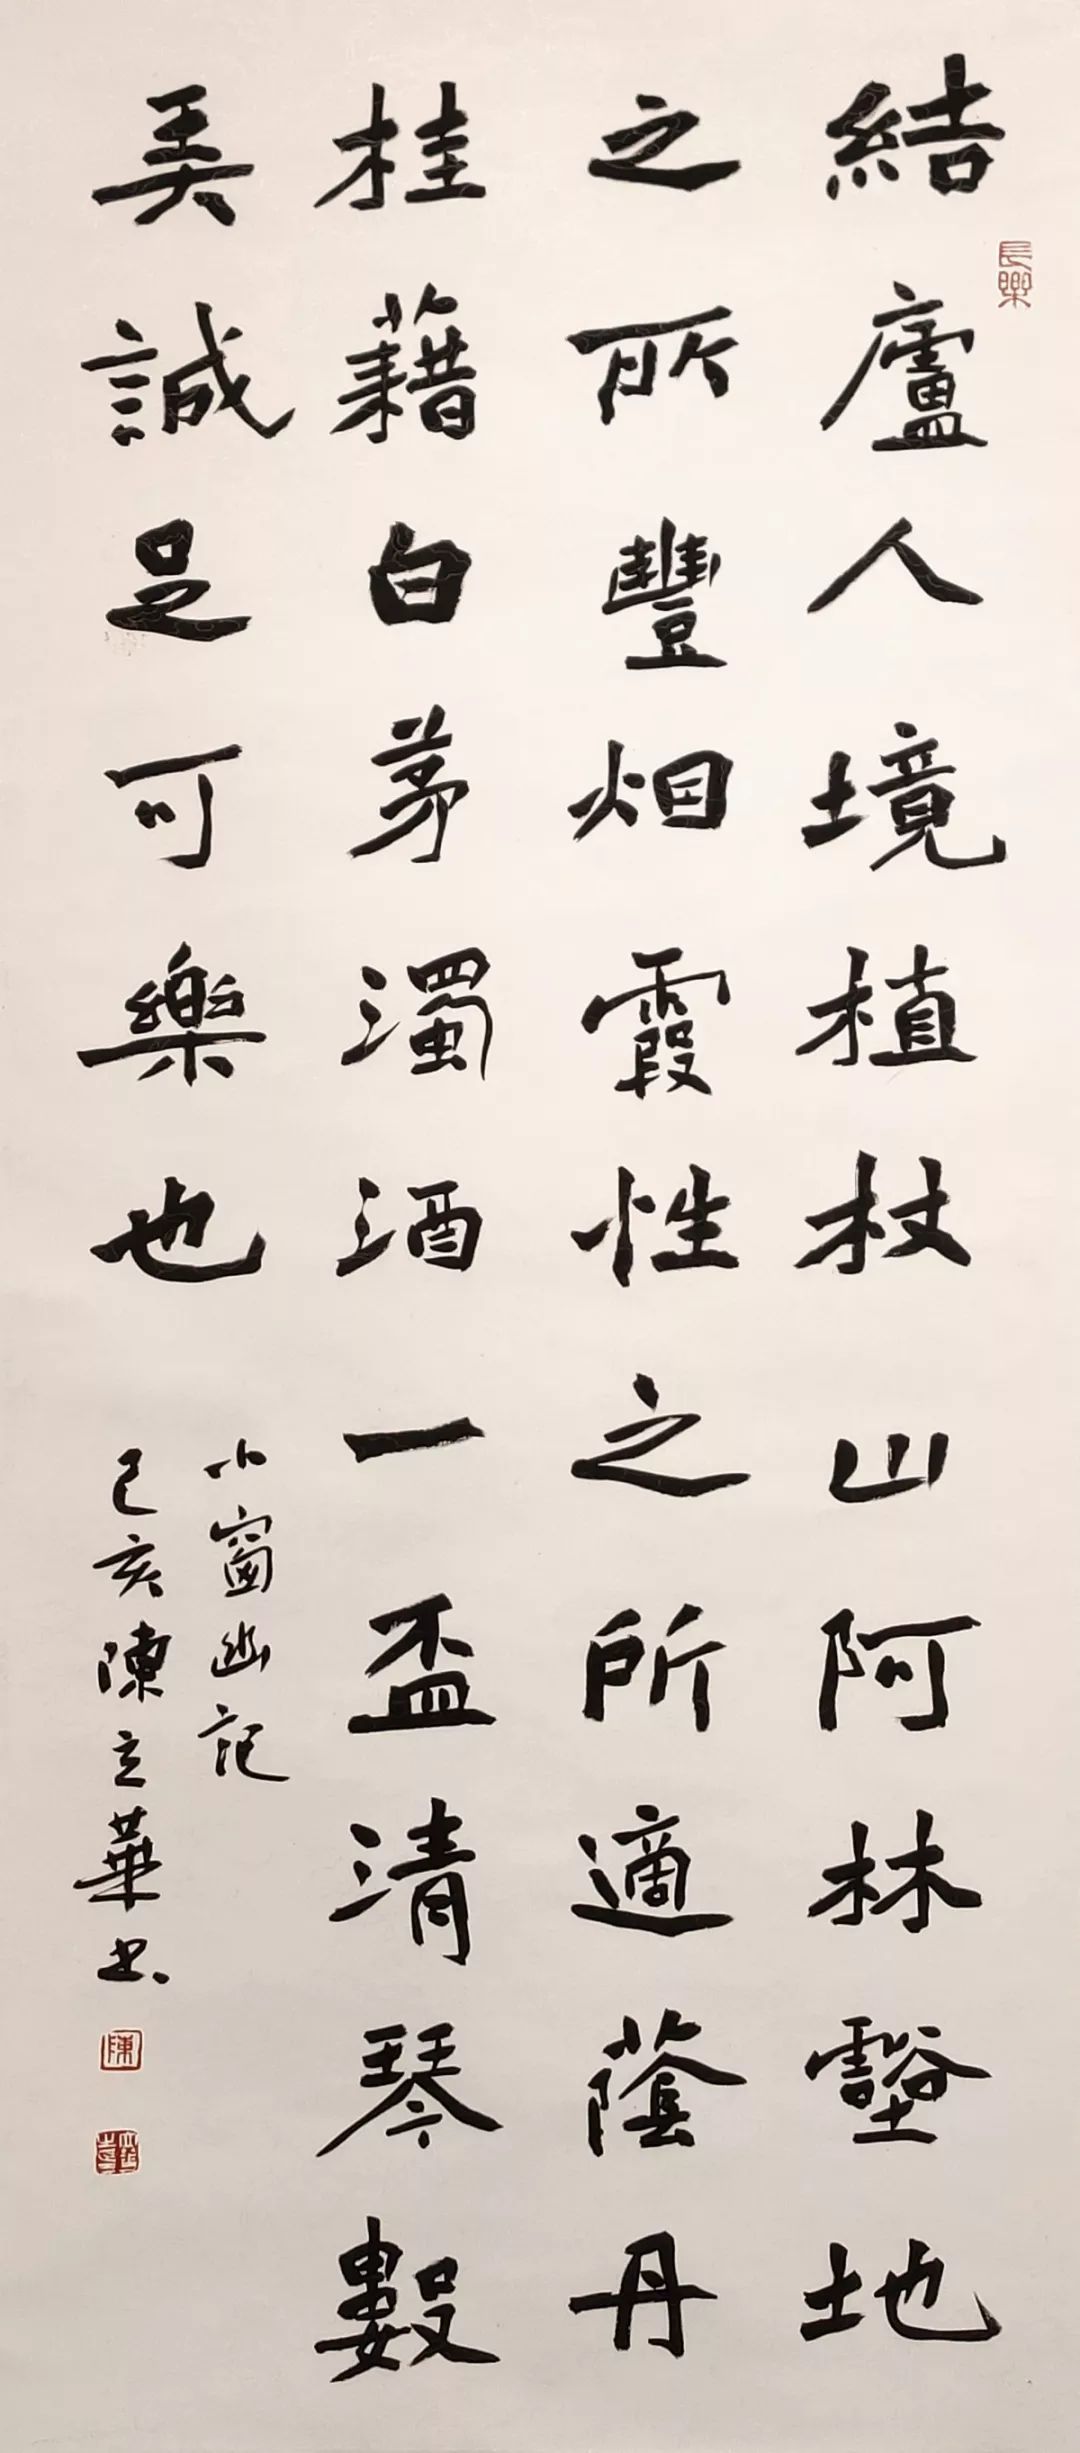 結廬人境植杖山阿林壑地
之所豐烟霞性之所適蔭丹
桂藉白茅濁酒一盃清琴數
弄誠足可樂也
小窗幽記
己亥陳立華书
長樂
陳